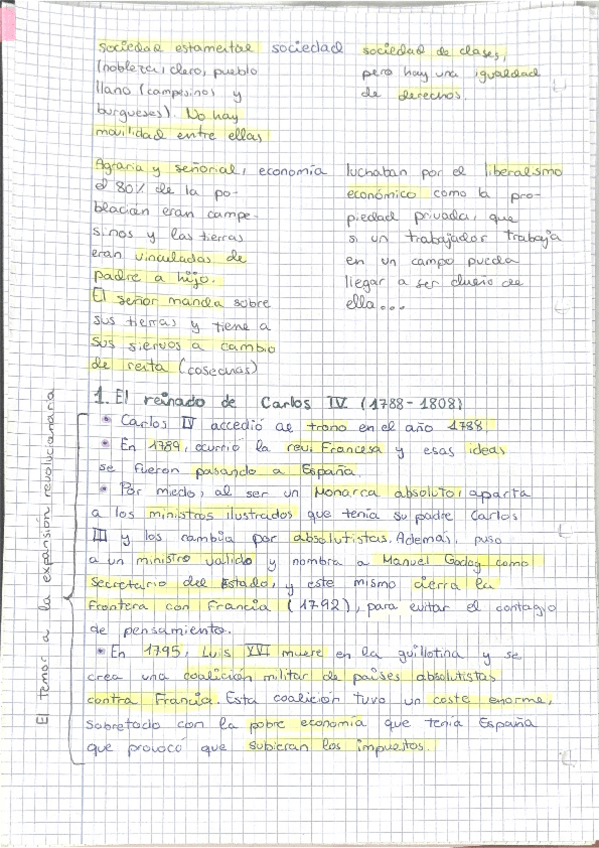 sociedad estamental sociedad sociedad de clases,
(nobleza, clero, pueblo pero hay una igualdad
llano (campesinos y de derechos.
burgueses). No hay
movilidad entre ellas
Agraria y señorial, economía luchaban por el liberalismo
el 80% de la po- económico como la pro-
blación eran campe- piedad privada, que
sinos y las tierras si un trabajador trabaja
eran vinculadas de en un campo pueda
padre a hijo. llegar a ser dueño de
El señor manda sobre ella...
sus tierras y tiene a
sus siervos a cambio
de renta (cosechas)
1. El reinado de Carlos IV (1788-1808)
• Carlos IV accedió al trono en el año 1788.
• En 1789, ocurrió la rev. Francesa y esas ideas
se fueron pasando a España.
• Por miedo, al ser un Monarca absoluto, aparta
a los ministros ilustrados que tenía su padre Carlos
III y los cambia por absolutistas. Además, puso
a un ministro valido y nombra a Manuel Godoy como
Secretario del Estado, y este mismo cierra la
frontera con Francia (1792), para evitar el contagio
de pensamiento.
• En 1795, Luis XVI muere en la guillotina y se
crea una coalición militar de países absolutistas
contra Francia. Esta coalición tuvo un coste enorme,
sobretodo con la pobre economía que tenía España
que provocó que subieran los impuestos.
El temor a la expansión revolucionaria